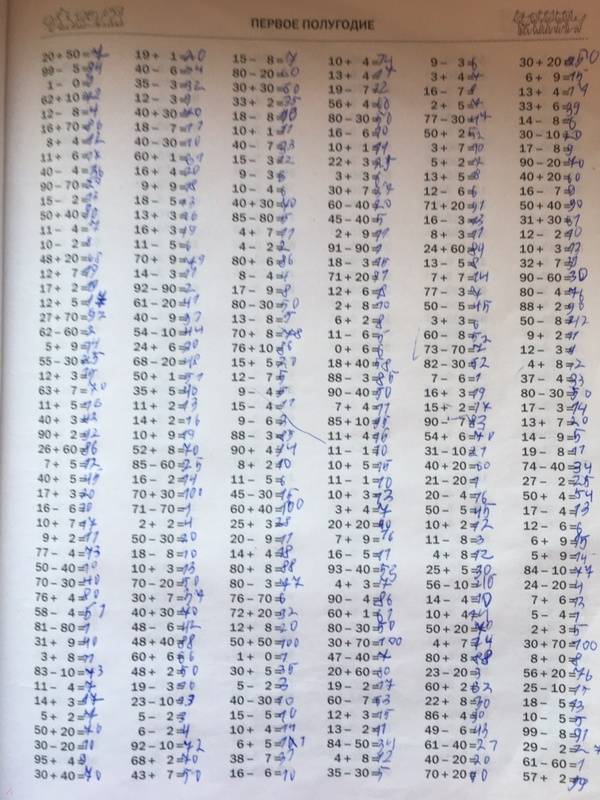 ПЕРВОЕ ПОЛУГОДИЕ
20 + 50 =
99 - 5 = 94
1 - 0 =
62 + 10 = 72
12 - 8 = 4
16 + 70 = 86
8 + 4 = 12
11 + 6 = 17
40 - 4 = 36
90 - 70 = 20
15 - 2 =
50 + 40 = 90
11 - 4 = 7
10 - 2 = 8
48 + 20 =
12 + 7 = 19
17 + 2 = 19
12 + 5 = 17
27 + 70 = 97
62 - 60 = 2
5 + 9 = 14
55 - 30 = 25
12 + 3 = 15
63 + 7 = 70
11 + 5 = 16
40 + 3 =
90 + 2 = 92
26 + 60 = 86
7 + 5 = 12
40 + 5 =
17 + 3 = 20
16 - 6 =
10 + 7 = 17
9 + 2 = 11
77 - 4 = 73
50 - 40 = 10
70 - 30 = 40
76 + 4 = 80
58 - 4 =
81 - 80 = 1
31 + 9 = 40
3 + 8 = 11
83 - 10 = 73
11 - 4 = 7
14 + 3 = 17
5 + 2 = 7
50 + 20 = 70
30 - 20 = 10
95 + 4 =
30 + 40 = 70
19 + 1 = 20
40 - 6 = 34
35 - 3 = 32
12 - 3 = 9
40 + 30 = 70
18 - 7 = 11
40 - 30 = 10
60 + 1 = 61
16 + 4 = 20
9 + 9 = 18
18 - 5 = 13
13 + 3 = 16
16 + 3 = 19
11 - 5 = 6
70 + 9 = 79
14 - 3 = 11
92 - 90 = 2
61 - 20 = 41
40 - 9 = 31
54 - 10 = 44
24 + 6 = 30
68 - 20 = 48
50 + 1 = 51
35 + 5 = 40
11 + 2 = 13
14 + 2 = 16
10 + 9 = 19
52 + 8 =
85 - 60 = 25
16 - 2 = 14
70 + 30 = 100
71 - 70 = 1
2 + 2 = 4
50 - 30 = 20
18 - 8 = 10
10 + 3 = 13
70 - 20 = 50
30 + 7 = 37
40 + 30 = 70
48 - 6 = 42
48 + 40 = 88
60 + 6 = 66
48 + 2 = 50
19 - 3 =
23 - 10 = 13
5 - 2 = 3
6 - 2 = 4
92 - 10 = 72
68 + 2 = 70
43 + 7 = 50
15 - 8 = 7
80 - 20 = 60
30 + 30 = 60
33 + 2 = 35
18 - 8 = 10
10 + 1 = 11
40 - 7 = 33
15 - 3 = 12
9 - 3 = 6
10 - 4 = 6
40 + 30 = 70
85 - 80 = 5
4 + 7 = 11
4 - 2 = 2
80 + 6 = 86
8 - 4 = 4
17 - 9 = 8
80 - 30 = 50
13 - 8 = 5
70 + 8 = 78
76 + 10 = 86
15 + 5 = 20
12 - 7 = 5
9 - 4 = 5
15 - 4 = 11
9 - 6 =
88 - 3 = 85
90 + 4 =
8 + 2 = 10
11 - 5 = 6
45 - 30 = 15
60 + 40 = 100
25 + 3 = 28
20 - 9 = 11
14 + 4 = 18
80 + 8 = 88
80 - 3 = 77
76 - 70 = 6
72 + 20 = 92
12 + 8 = 20
50 + 50 = 100
1 + 0 = 1
30 + 5 = 35
5 - 2 = 3
40 - 30 = 10
15 - 5 = 10
10 + 4 = 14
6 + 5 =
38 - 7 = 31
16 - 6 = 10
10 + 4 = 14
13 + 4 = 17
19 - 7 = 12
56 + 4 = 60
80 - 30 = 50
16 - 6 =
10 + 1 = 11
22 + 3 = 25
3 + 3 = 6
30 + 7 =
60 - 40 = 20
45 - 40 = 5
2 + 9 = 11
91 - 90 = 1
18 - 3 = 15
71 + 20 = 91
12 + 6 = 18
2 + 8 = 10
6 + 2 = 8
11 - 6 = 5
0 + 6 = 6
18 + 40 = 58
88 - 3 = 85
90 - 40 = 50
7 + 4 = 11
85 + 10 = 95
11 + 4 = 15
11 - 1 = 10
10 + 5 = 15
11 - 1 = 10
10 + 3 = 13
3 + 4 = 7
20 + 20 = 40
7 + 9 = 16
16 - 5 = 11
93 - 40 = 53
4 + 3 = 7
90 - 4 = 86
60 + 1 = 61
80 - 30 = 50
30 + 70 = 100
47 - 40 = 7
20 + 60 = 80
19 - 2 = 17
60 - 7 = 53
12 + 3 = 15
13 - 2 = 11
84 - 50 = 34
4 + 8 = 12
35 - 30 = 5
9 - 3 = 6
3 + 4 = 7
16 - 7 =
2 + 5 = 7
77 - 30 = 47
50 + 2 = 52
3 + 7 = 10
5 + 2 = 7
13 - 5 = 8
12 - 6 = 6
71 + 20 = 91
16 - 3 = 13
8 + 3 = 11
24 + 60 = 84
13 - 5 = 8
7 + 7 = 14
77 - 3 =
50 - 5 = 45
3 + 3 = 6
60 - 8 = 52
73 - 70 =
82 - 30 = 52
7 - 6 = 1
16 + 3 = 19
15 + 2 = 17
90 - 7 = 83
54 + 6 =
31 - 10 = 21
40 + 20 = 60
21 - 20 = 1
20 - 4 = 16
50 - 5 = 45
10 + 2 = 12
11 - 8 = 3
4 + 8 = 12
25 + 5 = 30
56 - 10 =
14 - 4 = 10
10 + 4 = 14
50 + 20 = 70
4 + 7 =
80 + 8 = 88
23 - 20 = 3
60 + 2 = 62
22 + 8 = 30
86 + 4 = 90
49 - 6 = 43
61 - 40 = 21
40 - 20 = 20
70 + 20 = 90
30 + 20 = 50
6 + 9 = 15
13 + 4 =
33 + 6 = 39
14 - 8 = 6
30 - 10 = 20
17 - 8 = 9
90 - 20 = 70
40 + 20 = 60
16 - 7 = 9
50 + 40 = 90
31 + 30 = 61
12 - 2 = 10
10 + 3 = 13
32 + 7 = 39
90 - 60 = 30
80 - 4 = 76
88 + 2 = 90
50 - 8 = 42
9 + 2 = 11
12 - 3 = 9
4 + 8 = 12
37 - 4 = 33
80 - 30 = 50
17 - 3 = 14
13 + 7 = 20
14 - 9 = 5
19 - 8 = 11
74 - 40 = 34
27 - 2 = 25
50 + 4 = 54
17 - 4 = 13
12 - 6 = 6
6 + 9 = 15
5 + 9 = 14
84 - 10 =
24 - 20 = 4
7 + 6 = 13
5 - 4 = 1
2 + 3 = 5
30 + 70 = 100
8 + 0 = 8
56 + 20 = 76
25 - 10 = 15
18 - 5 = 13
10 - 5 = 5
99 - 8 = 91
29 - 2 = 27
61 - 60 = 1
57 + 2 = 59